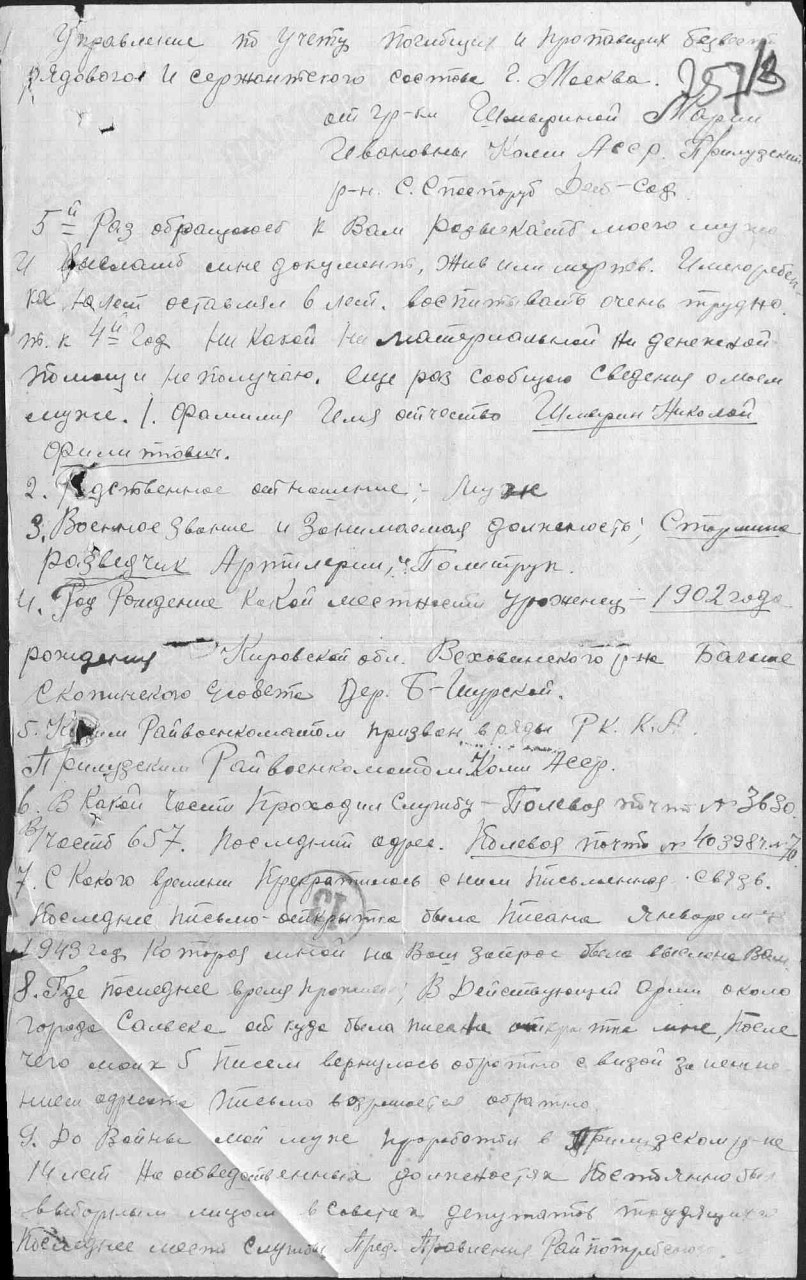 Управление по учету погибших и пропавших безвест
рядового и сержантского состава г. Москва.
257/3
от гр-ки Шмыриной Марии
Ивановны Коми Асср. Прилузский
р-н. С. Спаспоруб Дет-Сад.
5й Раз обращаюсь к Вам розыскать моего мужа
и выслать мне документ, жив или мертв. Имею ребен-
ка 10 лет оставлял 6 лет. воспитывать очень трудно.
т. к 4й год Ни какой Ни материальной ни денежной
помощи не получаю. Еще раз сообщаю сведения о моем
муже. 1. Фамилия Имя отчество Шмырин Николай
Филиппович.
2. Родственное отношение; - Муж
3. Военное звание и Занимаемая должность; Старшина
разведчик Артилерии, Политрук.
4. Год Рождение какой местности уроженец - 1902 года
рождения Кировской обл. Верховинского р-на Больше
Скопинского с/совета Дер. Б-Шурской.
5. Каким Райвоенкоматом призван в ряды Р К. К. А.
Прилузским Райвоенкоматом Коми Асср.
6. В Какой части Проходил Службу - Полевая почта № 3630.
В/часть 657. Последний адрес. Полевая почта № 40398
7. С Какого времени Прекратилась с ним Письменная связь.
Последнее письмо-открытка была Писана январем
1943 год Которая мной на Ваш запрос была выслана Вам
8. Где последнее время; В Действующей армии около
города Сальска от куда была писана открытка мне, После
чего моих 5 Писем вернулось обратно с визой за
нием адресата письмо возращается обратно
9. До Войны мой муж проработал в Прилузском р-не
14 лет На ответственных должностях Постоянно был
выборным лицом в Советах депутатов трудящихся
Последнее место службы Пред. Правления Райпотребсоюза.